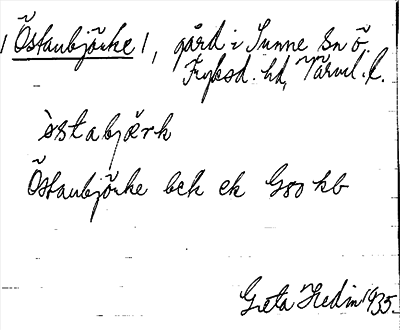 /Östanbjörke/, gård i Sunne sn Ö.
Fryksd. hd, Värml. l.
östabjærk
Östanbjörke bek ek G80 kb
Greta Hedin 1935.